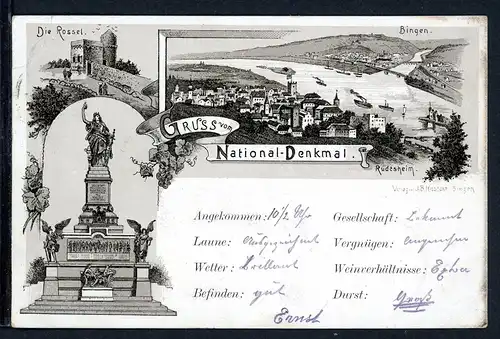 Die Rossel.
Bingen.
GRUSS vom
National-Denkmal.
Rüdesheim.
Verlag v. Bingen
Angekommen: 10 1/2 Uhr Gesellschaft: bekannt
Laune: Ausgezeichnet Vergnügen: angenehm
Wetter: brillant Weinverhältnisse:
Befinden: gut Durst: Groß
Ernst